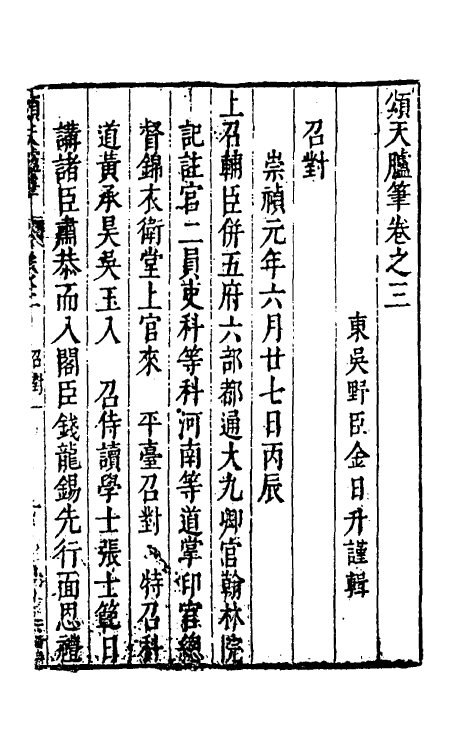 頌天臚筆卷之三
東吳野臣金日升謹輯
召對
崇禎元年六月廿七日丙辰
上召輔臣併五府六部都通大九卿官翰林院
記註官二員吏科等科河南等道掌印官總
督錦衣衛堂上官來　平臺召對　特召科
道黃承昊吳玉入　召侍讀學士張士範日
講諸臣肅恭而入閣臣錢龍錫先行面恩禮